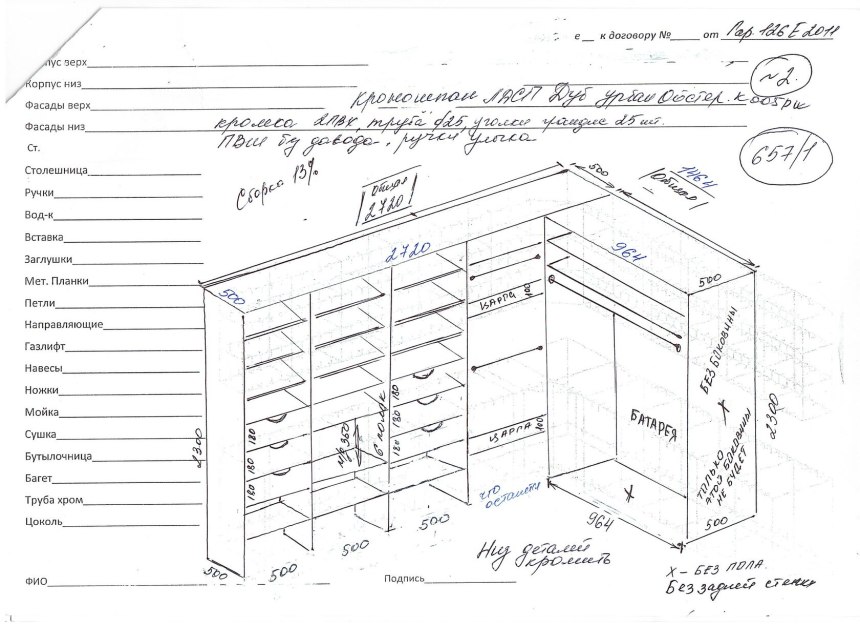 е__ к договору №_____ от Гар. 126 Е 2011
пус верх
Корпус низ
№2.
Фасады верх Кроношпан ЛДСП Дуб Урбан Ойстер. К005 PW
Фасады низ кромка 2ПВХ, труба ф25, уголки 25 шт.
Ст. ПВШ б/у довода, ручки улыбка
657/1
Столешница
Ручки
Вод-к
Вставка
Заглушки
Мет. Планки
Петли
Направляющие
Газлифт
Навесы
Ножки
Мойка
Сушка
Бутылочница
Багет
Труба хром
Цоколь
Сборка 13%
Общая
2720
500
1464
Общая
2720
964
500
500
ЦАРГА 100
БЕЗ БОКОВИНЫ
180
180
180
180
180
180
360
6 полок
БАТАРЕЯ
ЦАРГА 100
Х
2300
2300
ТОЛЬКО
ЭТОЙ БОКОВИНЫ
НЕ БУДЕТ
что
останется
Х
964
500
500
500
500
500
Низ деталей
кромить
Х – БЕЗ ПОЛА.
Без задней стенки
ФИО
Подпись